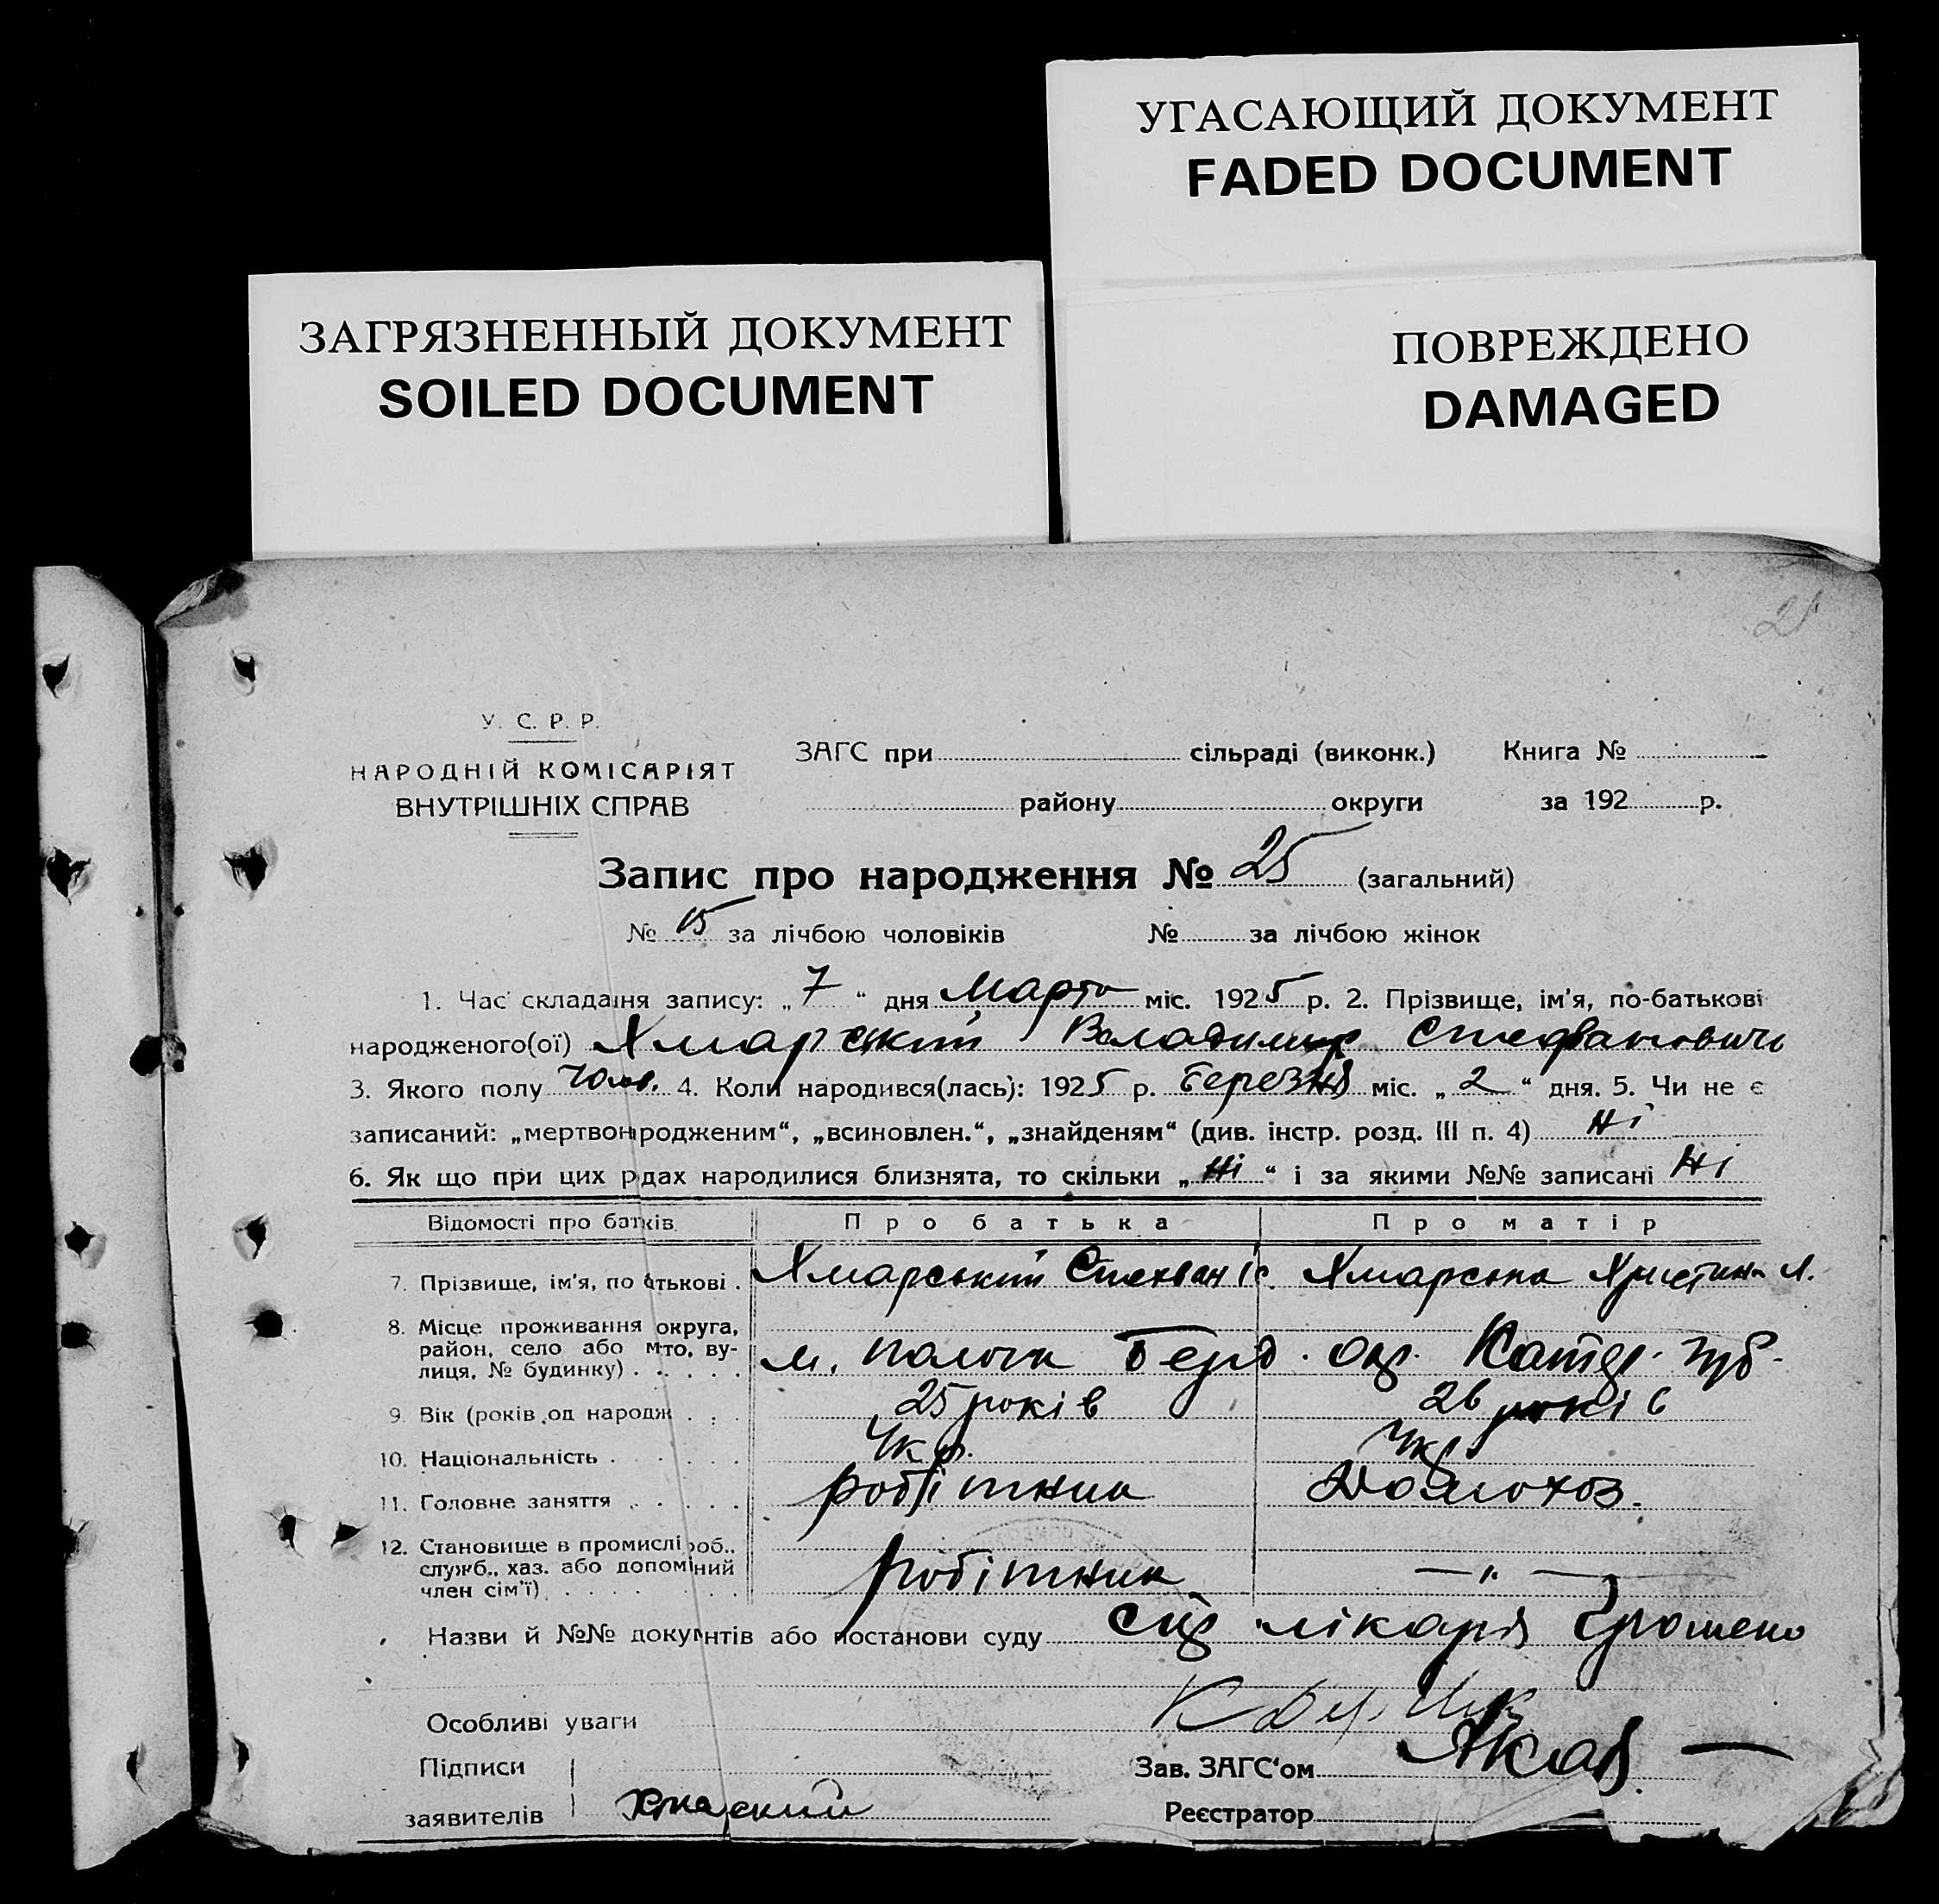 УГАСАЮЩИЙ ДОКУМЕНТ
FADED DOCUMENT
ЗАГРЯЗНЕННЫЙ ДОКУМЕНТ
SOILED DOCUMENT
ПОВРЕЖДЕНО
DAMAGED
У. С. Р. Р.
НАРОДНІЙ КОМІСАРІЯТ
ВНУТРІШНІХ СПРАВ
ЗАГС при сільраді (виконк.) Книга №
району округи за 192 р.
Запис про народження № 25 (загальний)
№ 15 за лічбою чоловіків № за лічбою жінок
1. Час складання запису: „ 7 “ дня Марта міс. 1925 р. 2. Прізвище, ім'я, по-батькові
народженого(ої) Хмарський Володимир Стефанович
3. Якого полу чол. 4. Коли народився(лась): 1925 р. березня міс. „ 2 “ дня. 5. Чи не є
записаний: „мертвонародженим“, „всиновлен.“, „знайденям“ (див. інстр. розд. III п. 4) Ні
6. Як що при цих родах народилися близнята, то скільки „ Ні “ і за якими №№ записані Ні
Відомості про батків Про батька Про матір
7. Прізвище, ім'я, по батькові . Хмарський Стехван Іс. Хмарська Христина Л.
8. Місце проживання округа,
район, село або м-то, ву-
лиця, № будинку) . . . . . м. Пологи Берд. окр. Катер. губ.
9. Вік (років од народж . . . 25 років 26 років
10. Національність . . . . . . Укр. Укр
11. Головне заняття . . . . . робітник Домохоз.
12. Становище в промислі роб.,
служб., хаз. або допоміжний
член сім'ї) . . . . . . . робітник — „ —
Назви й №№ документів або постанови суду лікаря
Особливі уваги
Підписи Зав. ЗАГС'ом
заявителів Хмарский Реєстратор